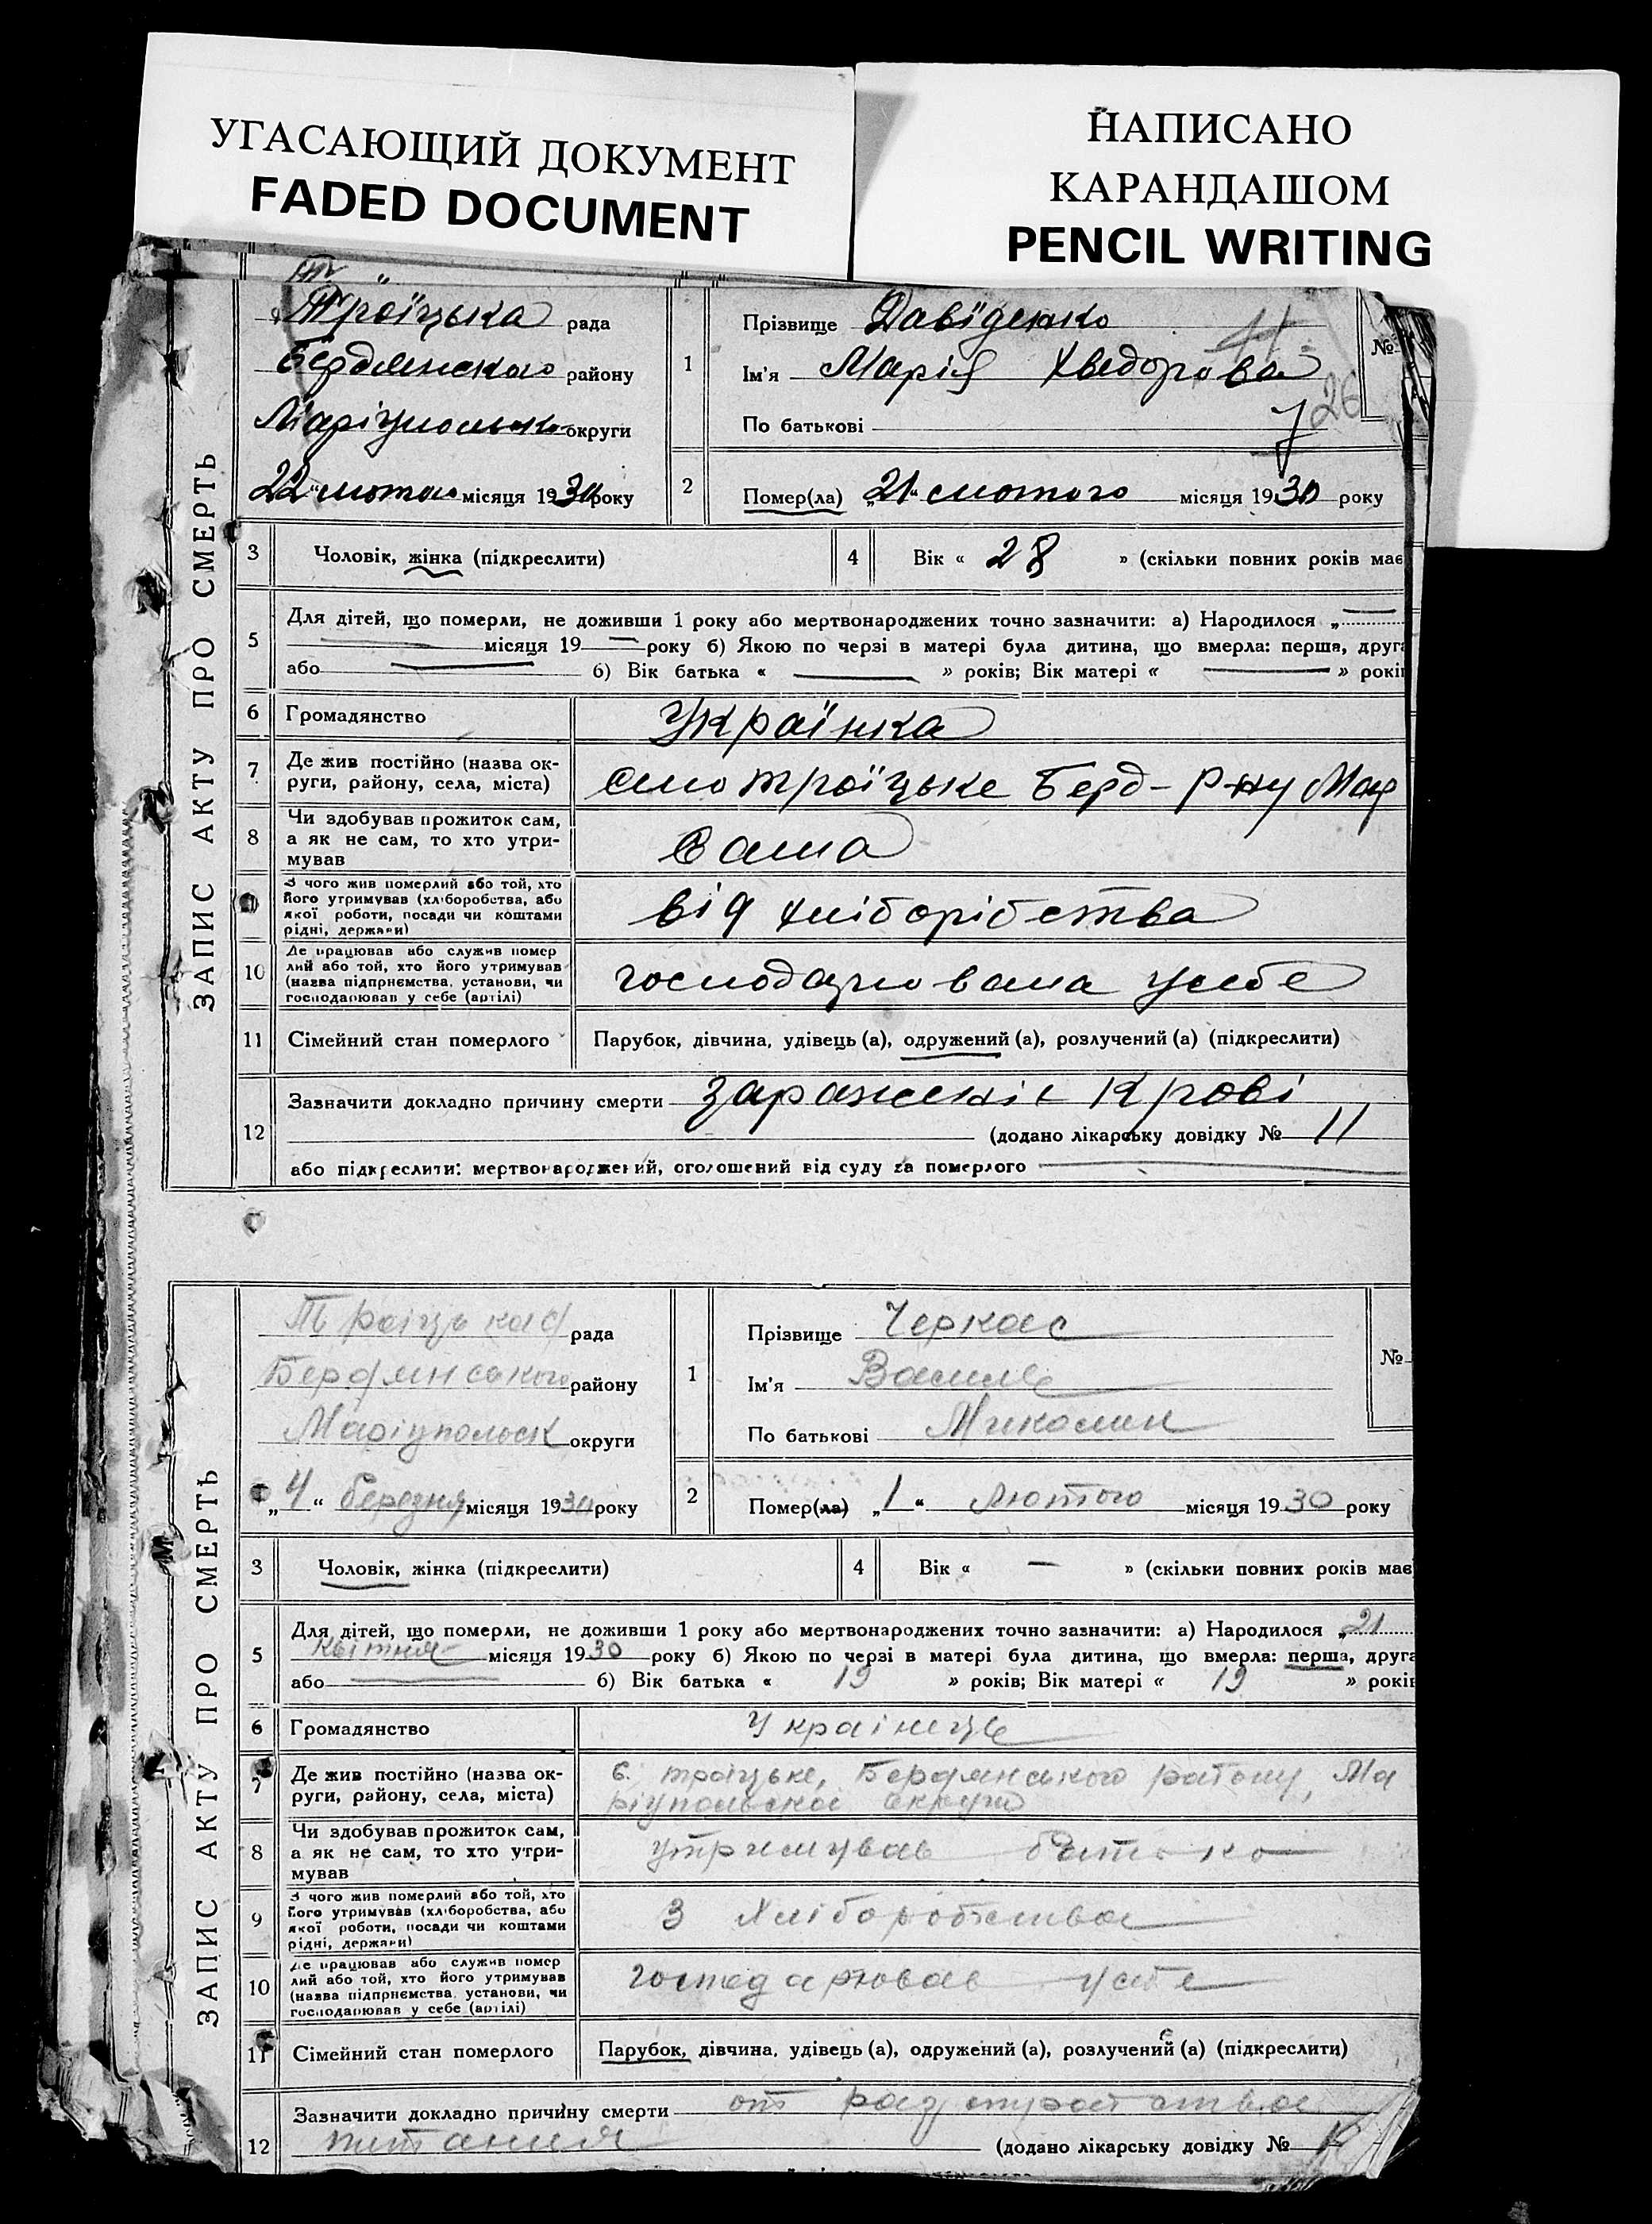 УГАСАЮЩИЙ ДОКУМЕНТ
FADED DOCUMENT
НАПИСАНО
КАРАНДАШОМ
PENCIL WRITING
ЗАПИС АКТУ ПРО СМЕРТЬ
Троїцька рада
Бердянского району
округи
22 лютого місяця 1930 року
1
Прізвище Давіденко
Ім'я Марія Хведорова
По батькові
№
26
2
Помер(ла) „21“ лютого місяця 1930 року
3 Чоловік, жінка (підкреслити)
4 Вік « 28 » (скільки повних років має
5 Для дітей, що померли, не доживши 1 року або мертвонароджених точно зазначити: а) Народилося „ —
— місяця 19 — року б) Якою по черзі в матері була дитина, що вмерла: перша, друга
або — б) Вік батька « — » років; Вік матері « — » років
6 Громадянство Українка
7 Де жив постійно (назва ок-
руги, району, села, міста) троїцьке Берд-р-ну Мар
8 Чи здобував прожиток сам,
а як не сам, то хто утри-
мував Сама
З чого жив померлий або той, хто
його утримував (хліборобства, або
якої роботи, посади чи коштами
рідні, держави) від хліборібства
10 Де працював або служив помер
лий або той, хто його утримував
(назва підприємства, установи, чи
господарював у себе (артілі) господарювала усебе
11 Сімейний стан померлого Парубок, дівчина, удівець (а), одружений (а), розлучений (а) (підкреслити)
12 Зазначити докладно причину смерти зараженіє крові
(додано лікарську довідку № 11
або підкреслити: мертвонароджений, оголошений від суду за померлого —
ЗАПИС АКТУ ПРО СМЕРТЬ
Троіцька рада
Бердянського району
Маріупольск округи
„4“ березня місяця 1930 року
1
Прізвище Черкас
Ім'я Василь
По батькові Миколин
№
2
Помер(ла) „1“ Лютого місяця 1930 року
3 Чоловік, жінка (підкреслити)
4 Вік « — » (скільки повних років має
5 Для дітей, що померли, не доживши 1 року або мертвонароджених точно зазначити: а) Народилося „21
Квітня місяця 1930 року б) Якою по черзі в матері була дитина, що вмерла: перша, друга
або — б) Вік батька « 19 » років; Вік матері « 19 » років
6 Громадянство Украінець
7 Де жив постійно (назва ок-
руги, району, села, міста) с. троіцьке, Бердянського району, Ма
ріупольскоі округи
8 Чи здобував прожиток сам,
а як не сам, то хто утри-
мував утримував батько
9 З чого жив померлий або той, хто
його утримував (хліборобства, або
якої роботи, посади чи коштами
рідні, держави) З Хліборобства
10 Де працював або служив помер
лий або той, хто його утримував
(назва підприємства, установи, чи
господарював у себе (артілі) господарював усебе
11 Сімейний стан померлого Парубок, дівчина, удівець (а), одружений (а), розлучений (а) (підкреслити)
12 Зазначити докладно причину смерти от
питания (додано лікарську довідку №